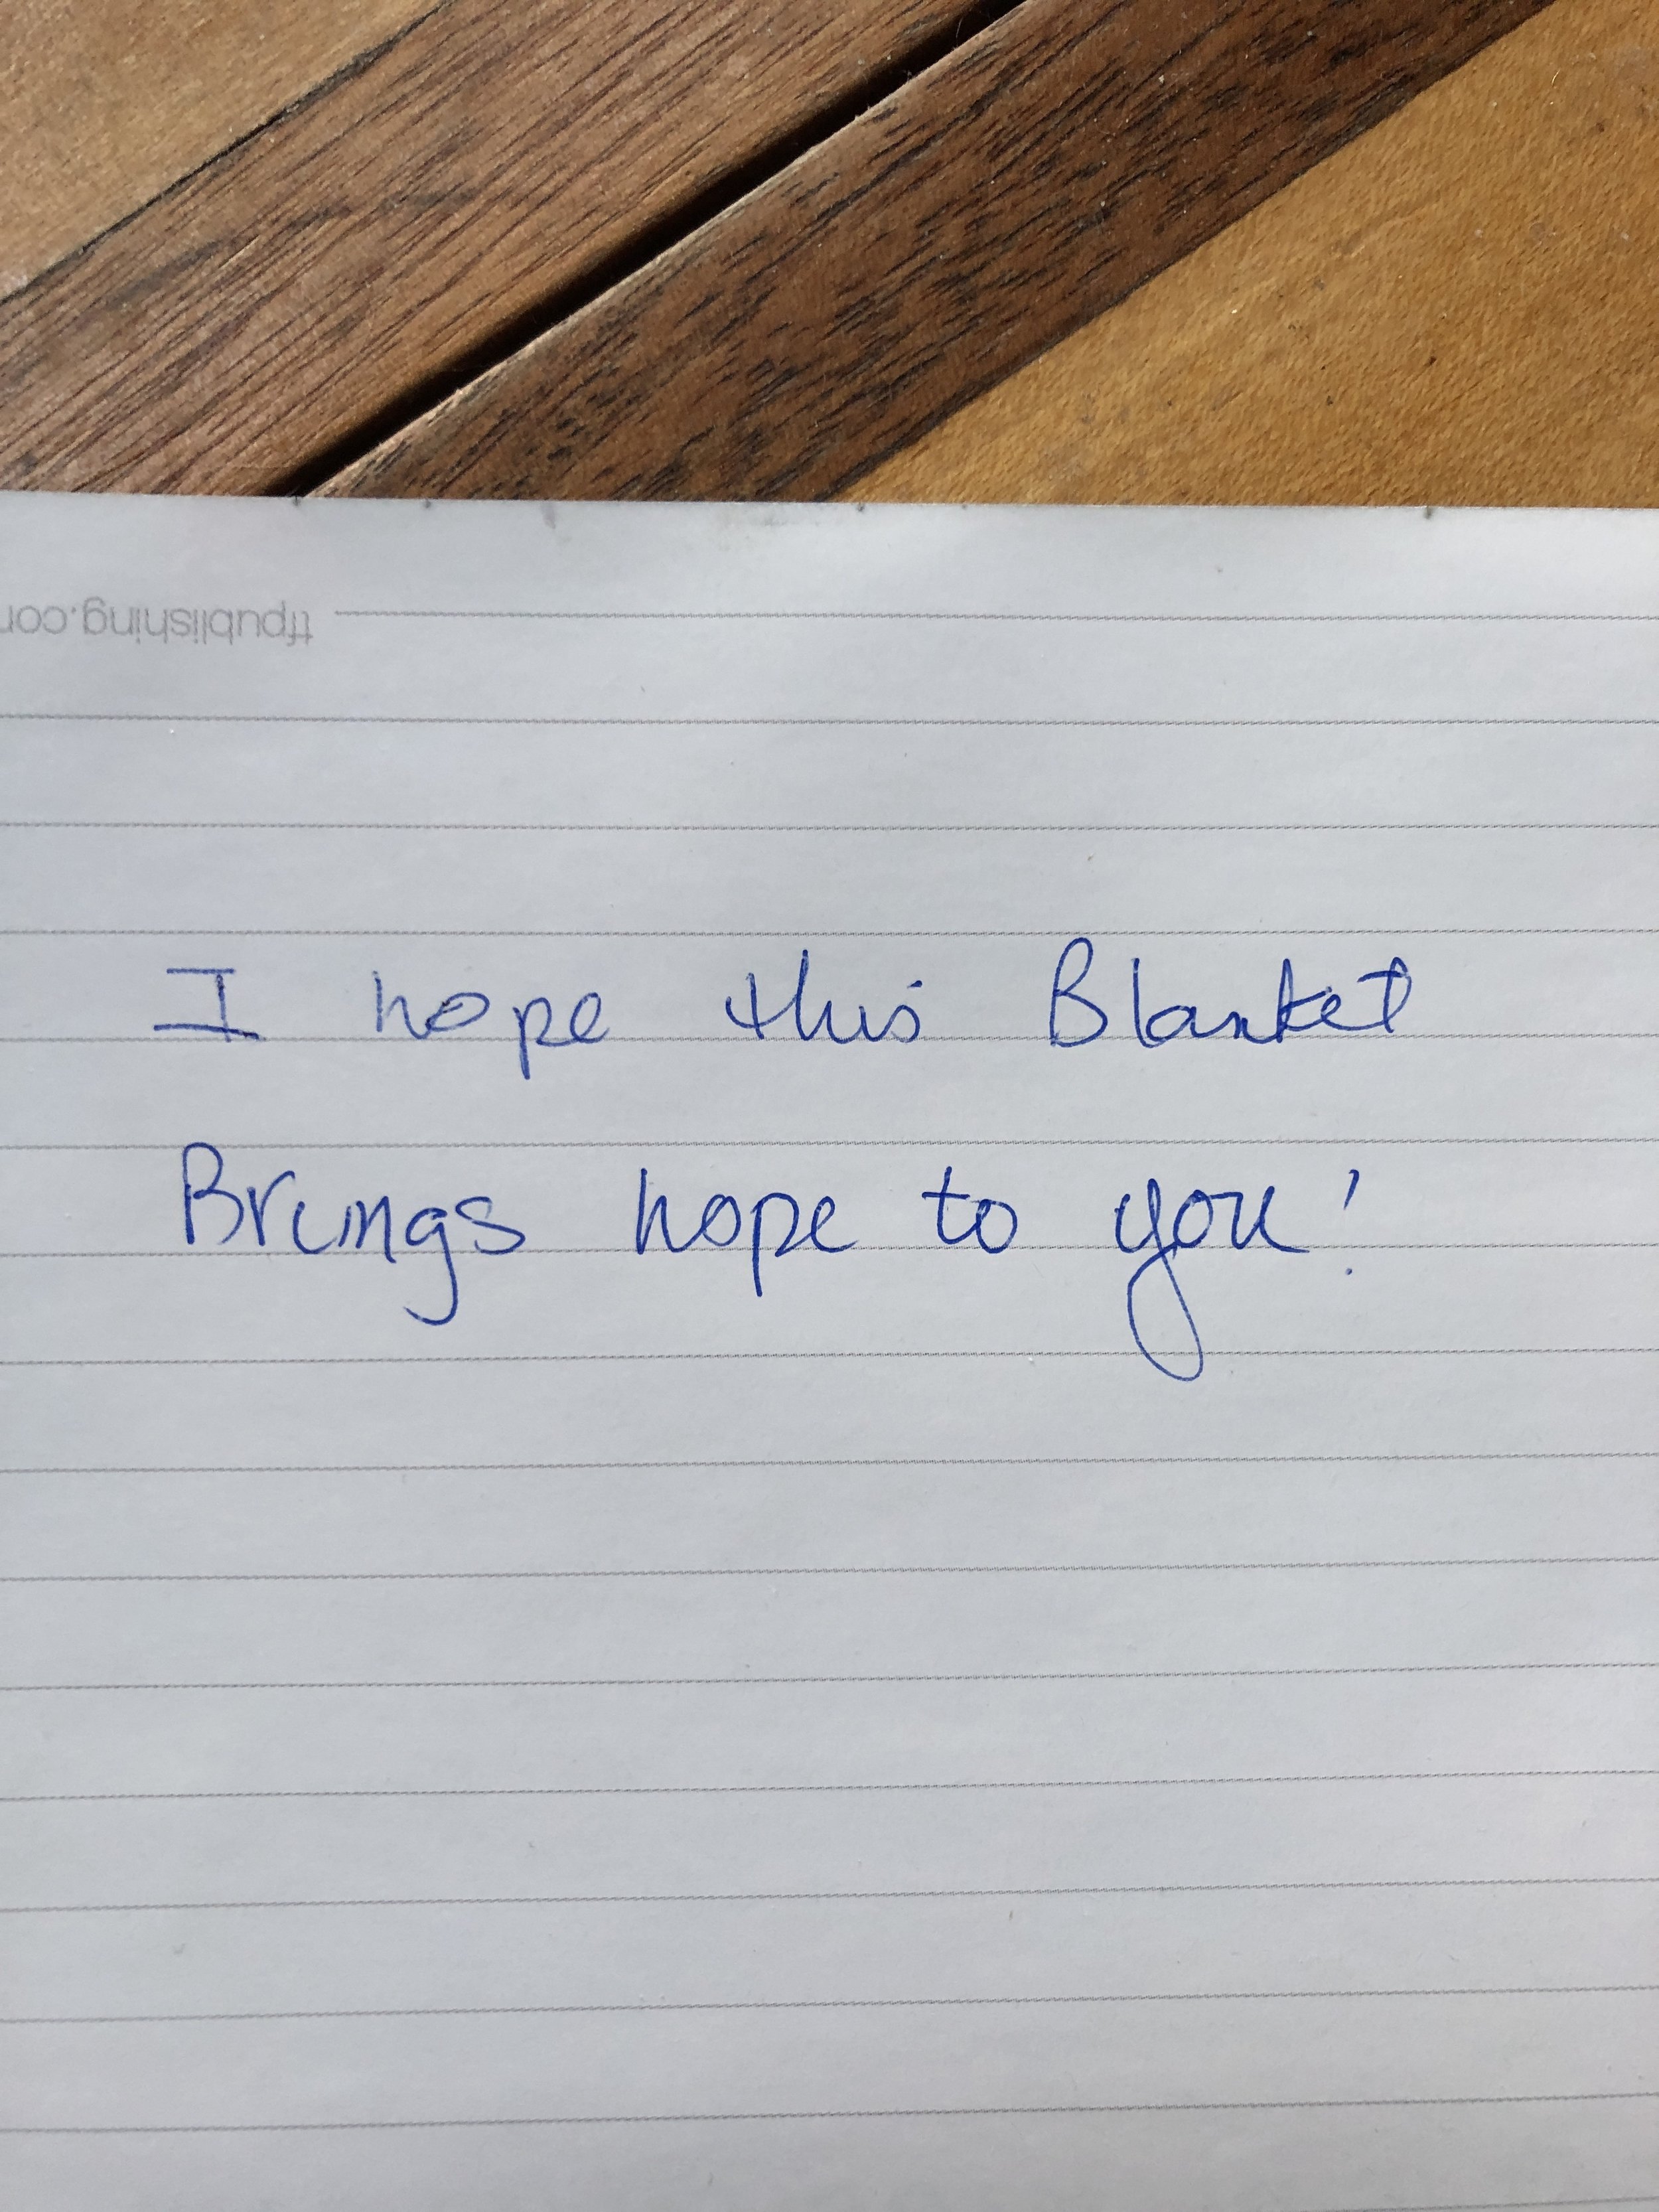 tfpublishing.com
I hope this Blanket
Brings hope to you!